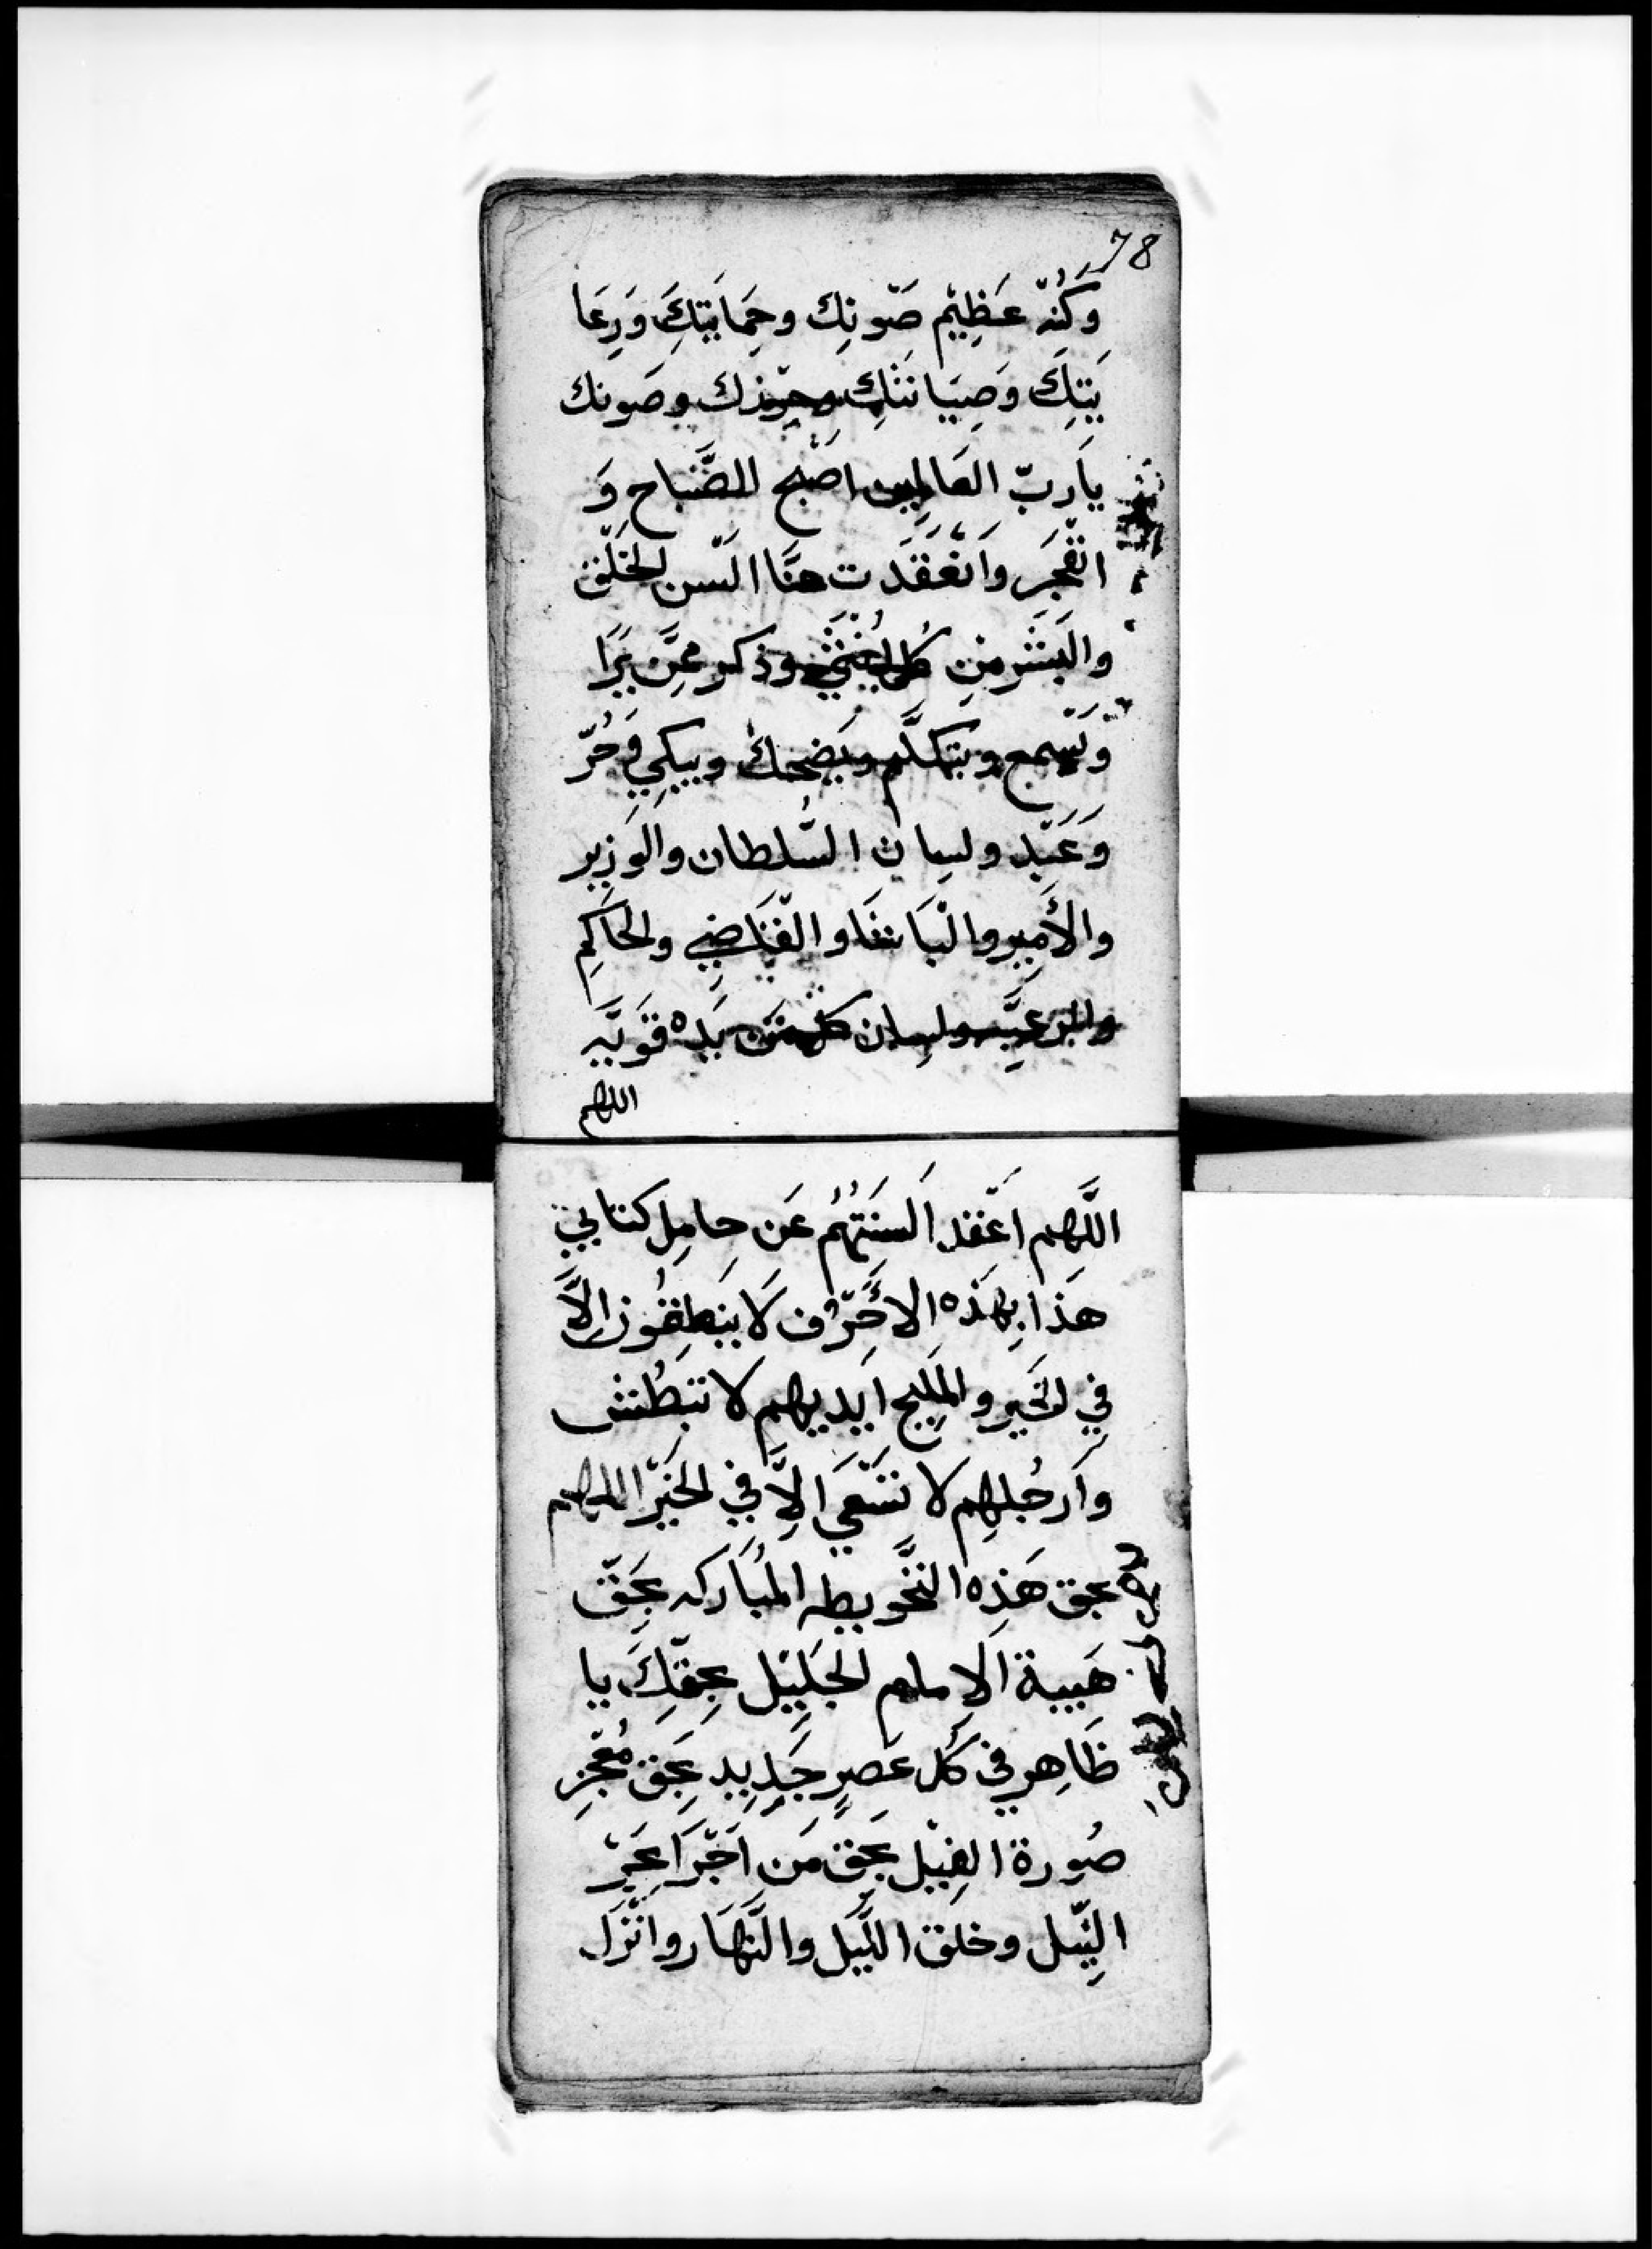 78
وَكُنْهِ عَظِيْم صَوْنِك وحِمَايَتِكَ وَرِعَا
يَتِكَ وَصِيَانَتِكَ وحِرْزك وصَونك
يَا رَبّ العَالمِين اصْبح الصَّبَاح وَ
انْفَجَرَ وَانْعَقَدَت هنَّا الَسن الخَلْق
والبَشَر مِن كل انثى وذكر مِمَّن يَرَا
وَيَسْمع ويتكلَّم ويَضحك ويبكِي في حُرّ
وَعَبْد ولسان السُّلطان والوَزِير
والأَمِير والبَاشَا والقَاضِي والحَاكِم
والرعِيَّه ولسان كلمن يَده قَويَّه
اللهم
اللَّهم اعْقد اَلسنَتَهُم عَن حامِل كتابي
هَذا بِهَذه الاحْرُف لَا يَنطِقُون اِلَّا
فِي الخَير والمَلِيح ايديهم لا تبطُش
وَارجُلهِم لا تَسْعَي اِلَّا فِي الخَيْر اللهم
بحق هَذِه التَّحْويطه المُبَاركه بحَقّ
هَيبة الامام الجَلِيْل بحَقِّكَ يا
ظَاهِر في كُل عَصرٍ جَدِيد بحَق مُعْجِز
صُورة الفِيْل بحَق مَن اَجْرَا بَحِرْ
النِيْل وخلق اللَّيل والنَّهَار وانْزَل